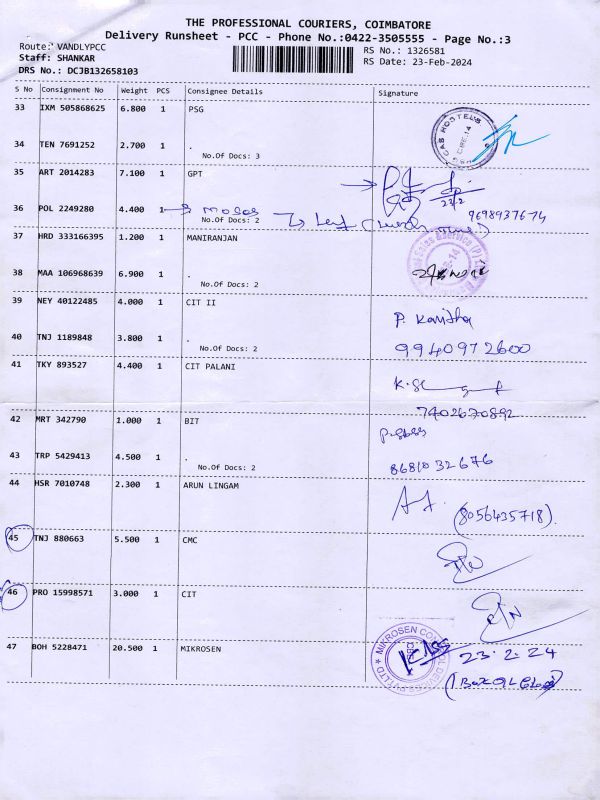 THE PROFESSIONAL COURIERS, COIMBATORE
Delivery Runsheet - PCC - Phone No.:0422-3505555 - Page No.:3
Route: VANDLYPCC
RS No.: 1326581
Staff: SHANKAR
RS Date: 23-Feb-2024
DRS No.: DCJB132658103
S No Consignment No Weight PCS Consignee Details Signature
33 IXM 505868625 6.800 1 PSG
34 TEN 7691252 2.700 1 .
No.Of Docs: 3
35 ART 2014283 7.100 1 GPT
23/2
36 POL 2249280 4.400 1
No.Of Docs: 2
9698937674
37 HRD 333166395 1.200 1 MANIRANJAN
38 MAA 106968639 6.900 1 .
No.Of Docs: 2
39 NEY 40122485 4.000 1 CIT II
P. Kavitha
40 TNJ 1189848 3.800 1 .
No.Of Docs: 2
9940972600
41 TKY 893527 4.400 1 CIT PALANI
7402670892
42 MRT 342790 1.000 1 BIT
43 TRP 5429413 4.500 1 .
No.Of Docs: 2
8681032676
44 HSR 7010748 2.300 1 ARUN LINGAM
(8056435718)
45 TNJ 880663 5.500 1 CMC
46 PRO 15998571 3.000 1 CIT
47 BOH 5228471 20.500 1 MIKROSEN
23.2.24